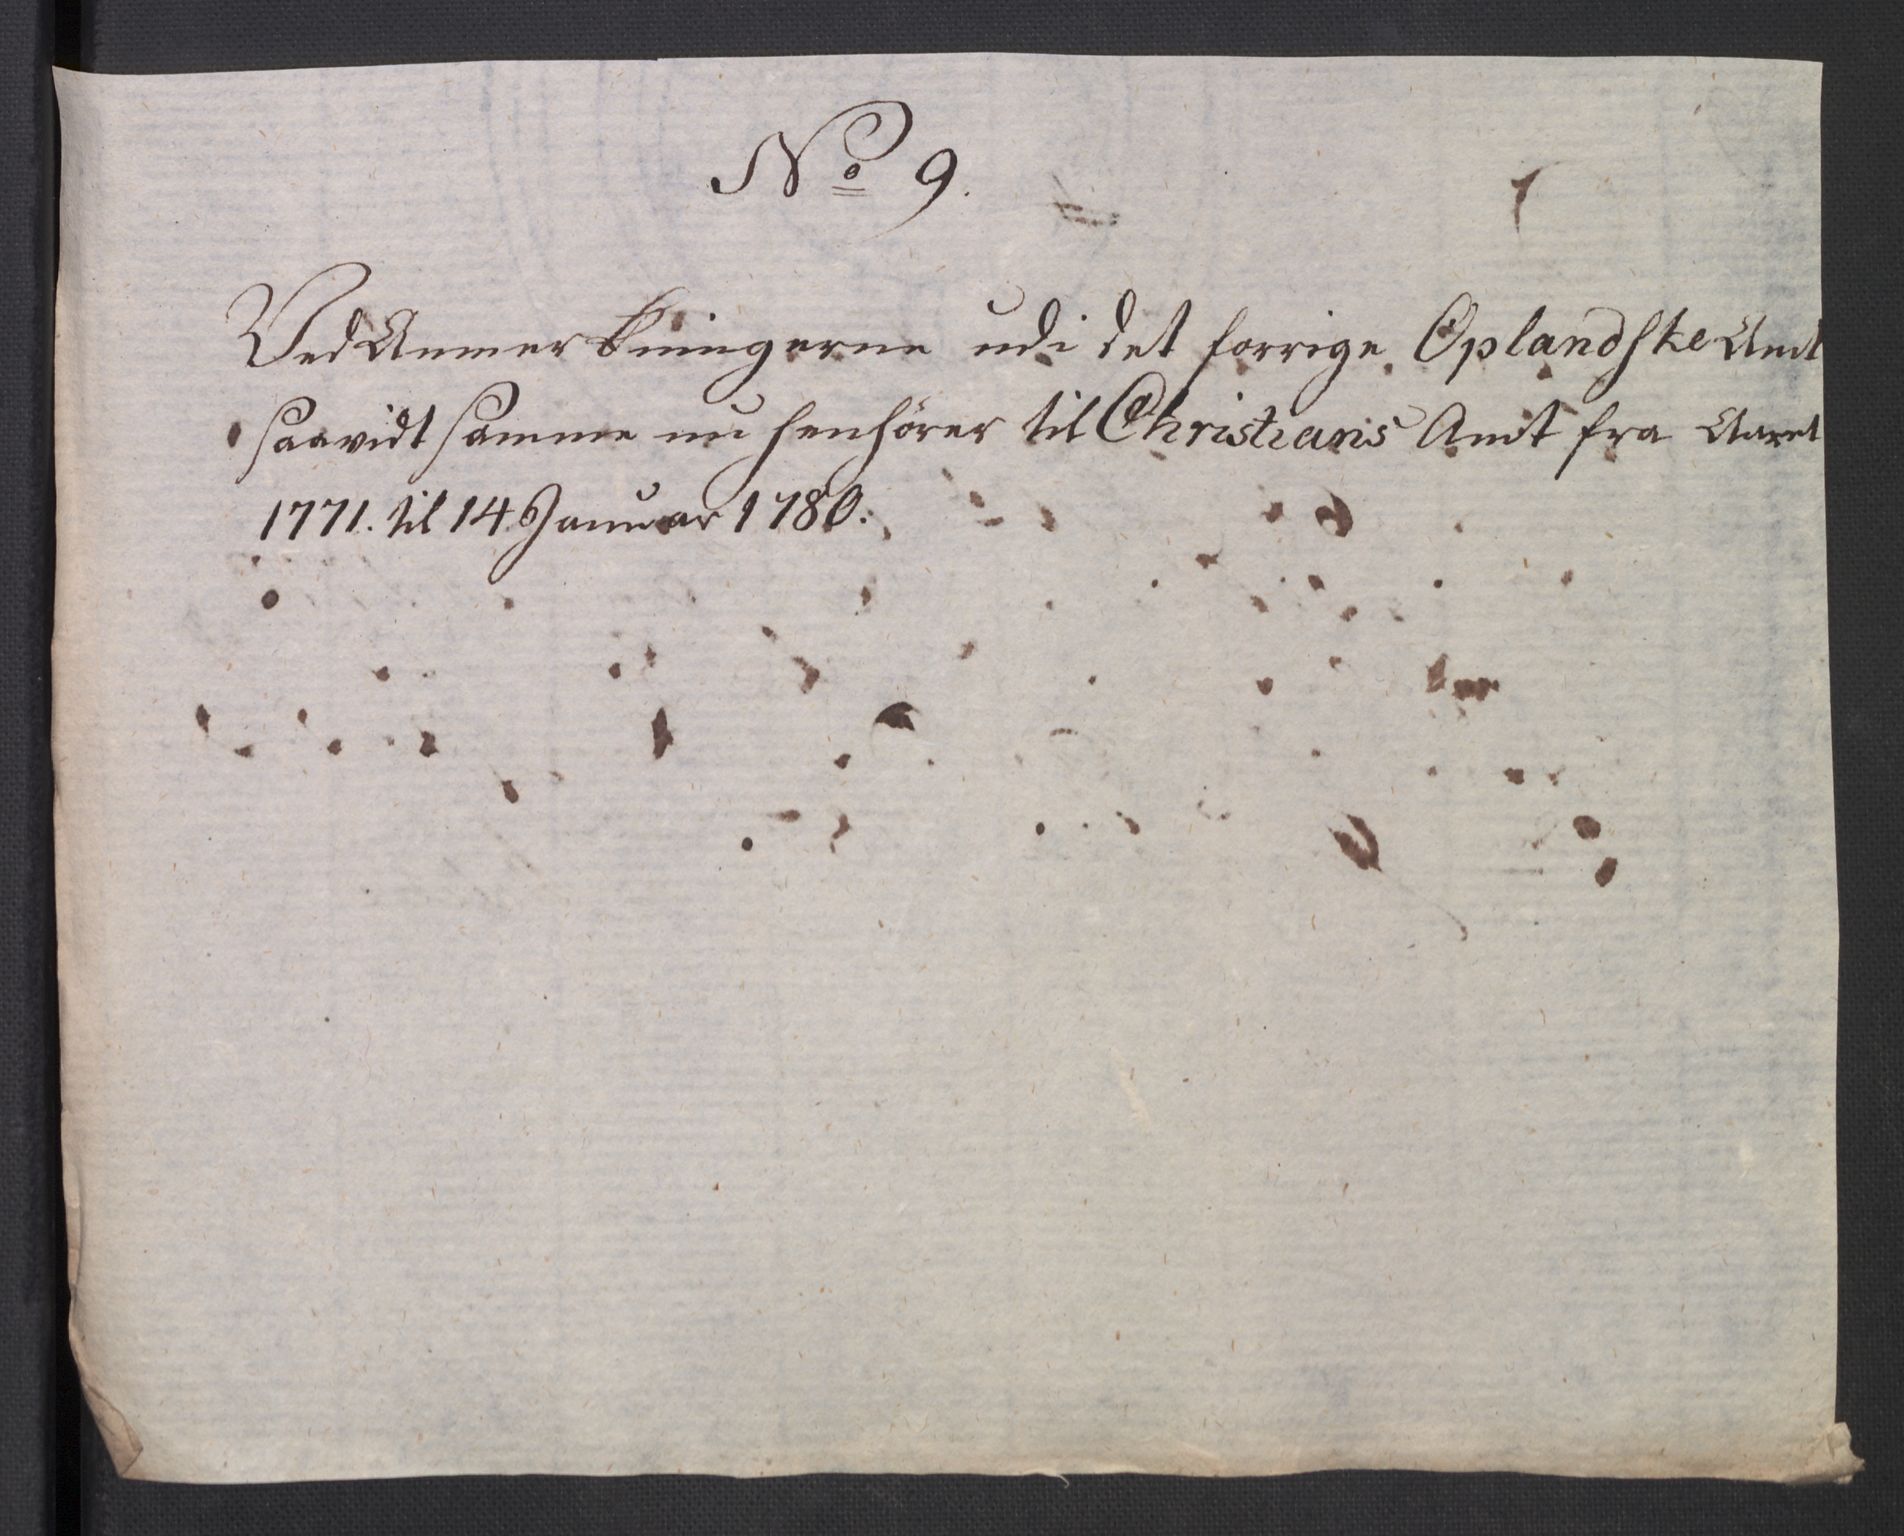 No 9.
Ved Anmerkningerne udi det forrige Oplandske Amt
saavidt samme nu henhörer til Christians Amt fra Aaret
1771. til 14 Januar 1780.